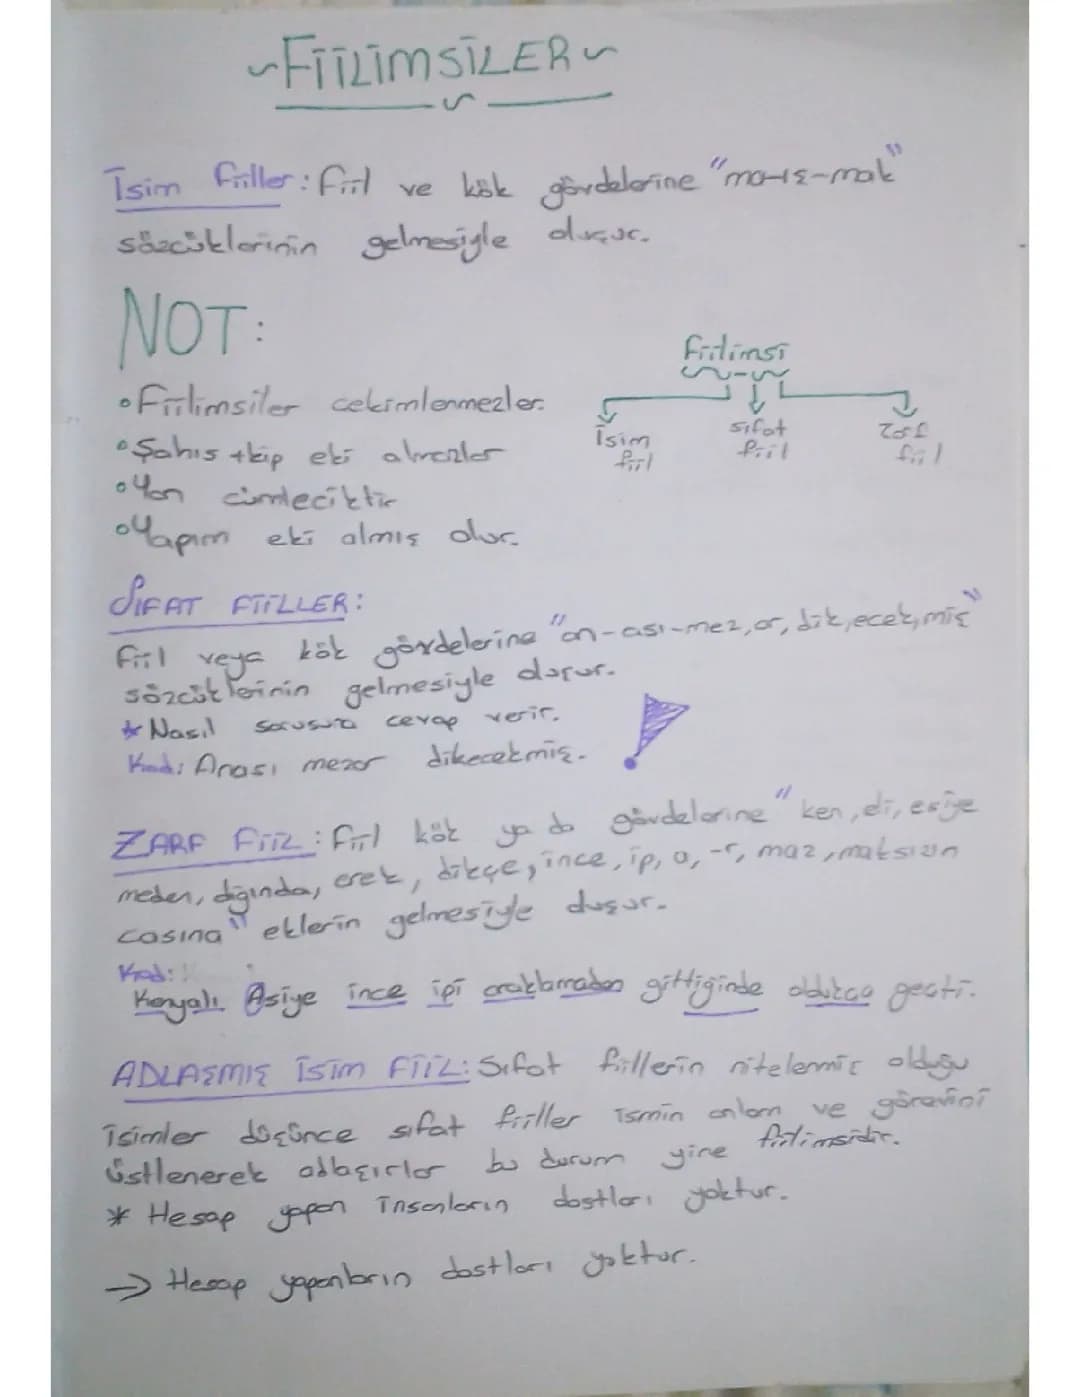 ~FİİLİMSİLER~
İsim fiiller: fiil ve kök gövdelerine "ma-ış-mak"
sözcüklerinin gelmesiyle oluşur.
NOT:
•Fiilimsiler cekimlenmezler.
•Şahıs +kip eki almazlar
•Yan cümleciktir
•Yapım eki almış olur.
Fiilimsi
İsim fiil
sıfat fiil
Zarf fiil
SIFAT FİİLLER:
fiil veya kök gövdelerine "an-ası-mez, ar, dik, ecek, miş"
sözcüklerinin gelmesiyle oluşur.
* Nasıl sorusuna cevap verir.
Kod: Anası mezar dikecekmiş.
ZARF FİİL: fiil kök ya da gövdelerine "ken, eli, esiye
meden, dığında, erek, dikçe, ince, ip, a, -r, maz, maksızın
casına" eklerin gelmesiyle oluşur.
Kod:
Kenyalı Asiye ince ipi oraklamadan gittiğinde oldukca geçti.
ADLAŞMIŞ İSİM FİİL: Sıfat fiillerin nitelenmiş olduğu
isimler düşünce sıfat fiiller ismin anlam ve görevini
üstlenerek adlaşırlar bu durum yine fiilimsidir.
* Hesap yapan insanların dostları yoktur.
→ Hesap yapanların dostları yoktur.